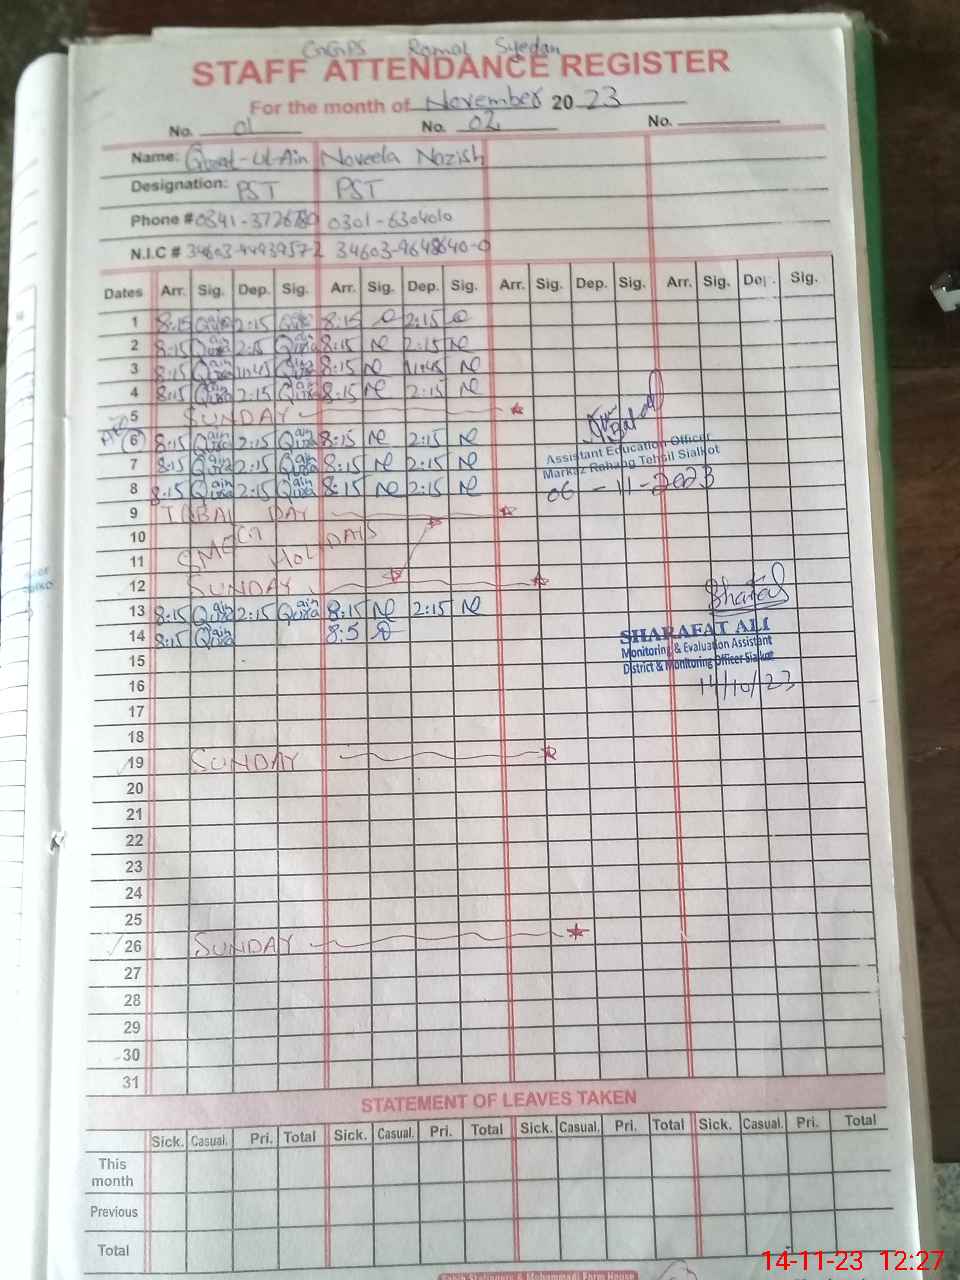 GGPS Romal Syedan
STAFF ATTENDANCE REGISTER
For the month of November 20 23
No. 01 No. 02 No.
Name: Qurat-ul-Ain Naveela Nazish
Designation: PST PST
Phone # 0301-6304010
N.I.C # 34603-9648640-0
Dates Arr. Sig. Dep. Sig. Arr. Sig. Dep. Sig. Arr. Sig. Dep. Sig. Arr. Sig. Dep. Sig.
1 8:15 2:15 8:15 2:15
2 8:15 Qura ain 2:15 Qura ain 8:15 N 2:15 N
3 8:15 Qura ain 11:45 Qura ain 8:15 N 11:45 N
4 8:15 Qura ain 2:15 Qura ain 8:15 N 2:15 N
5 SUNDAY
6 8:15 Qura ain 2:15 Qura ain 8:15 N 2:15 N
Assistant Education Officer
7 8:15 Qura ain 2:15 Qura ain 8:15 N 2:15 N
Markaz Rahang Tehsil Sialkot
8 8:15 Qura ain 2:15 Qura ain 8:15 N 2:15 N
06-11-2023
9 IQBAL DAY
10
11 SMOG HOLIDAYS
12 SUNDAY
13 8:15 Qura ain 2:15 Qura ain 8:15 N 2:15 N
Sharafat
14 8:15 Qura ain 8:5
SHARAFAT ALI
Monitoring & Evaluation Assistant
15
District & Monitoring Officer Sialkot
16
14/10/23
17
18
19 SUNDAY
20
21
22
23
24
25
26 SUNDAY
27
28
29
30
31
STATEMENT OF LEAVES TAKEN
Sick. Casual. Pri. Total Sick. Casual. Pri. Total Sick. Casual. Pri. Total Sick. Casual. Pri. Total
This
month
Previous
Total
14-11-23 12:27